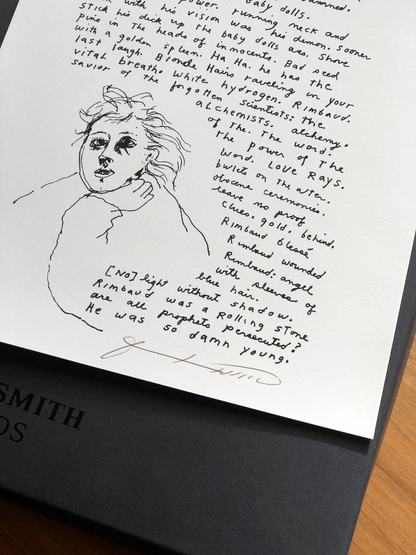 baby dolls.
power. running neck and
with his vision was his demon. sooner
stick his dick up the baby dolls ass. Shove
pins in the heads of innocents. Bad seed
with a golden spleen. Ha. Ha. he has the
last laugh. Blonde Hairs raveling in your
vital breath. white hydrogen. Rimbaud.
savior of the forgotten scientists: the
aLCHemists. alchemy.
of the. The word
the power of The
Word. LOVE RAYS.
on the alter.
obscene ceremonies.
leave no proof
clues. gold. behind.
Rimbaud blessé
Rimbaud wounded
Rimbaud: angel
with sleeves of
blue hair.
[NO] light without shadow.
Rimbaud was a Rolling Stone
are all prophets persecuted?
He was so damn young.
SMITH
OS